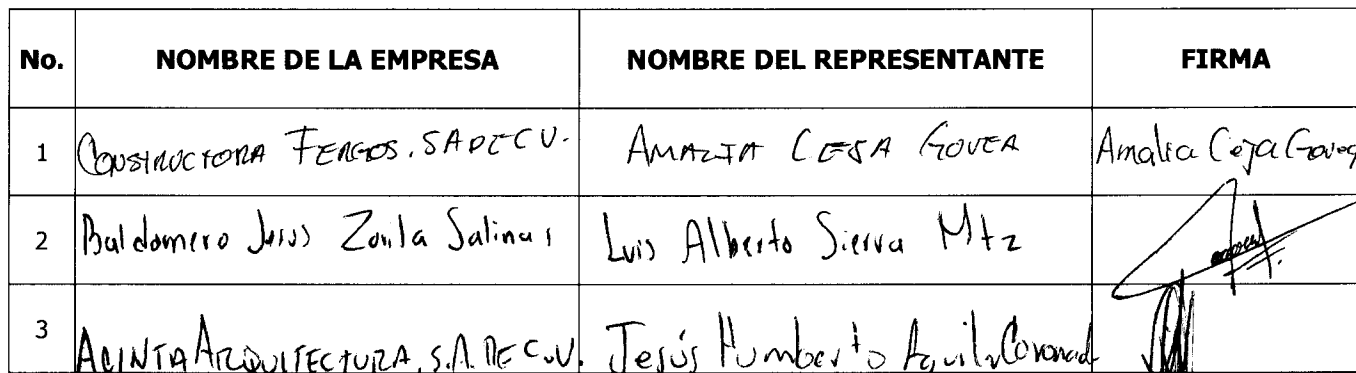 No. NOMBRE DE LA EMPRESA NOMBRE DEL REPRESENTANTE FIRMA
1 CONSTRUCTORA FERGOS, SA DE C.V. AMALIA CEJA GOVEA Amalia Ceja Govea
2 Baldomero Jesus Zavala Salinas Luis Alberto Sierra Mtz
3 ACINTA ARQUITECTURA, S.A. DE C.V. Jesús Humberto Aguilar Coronado